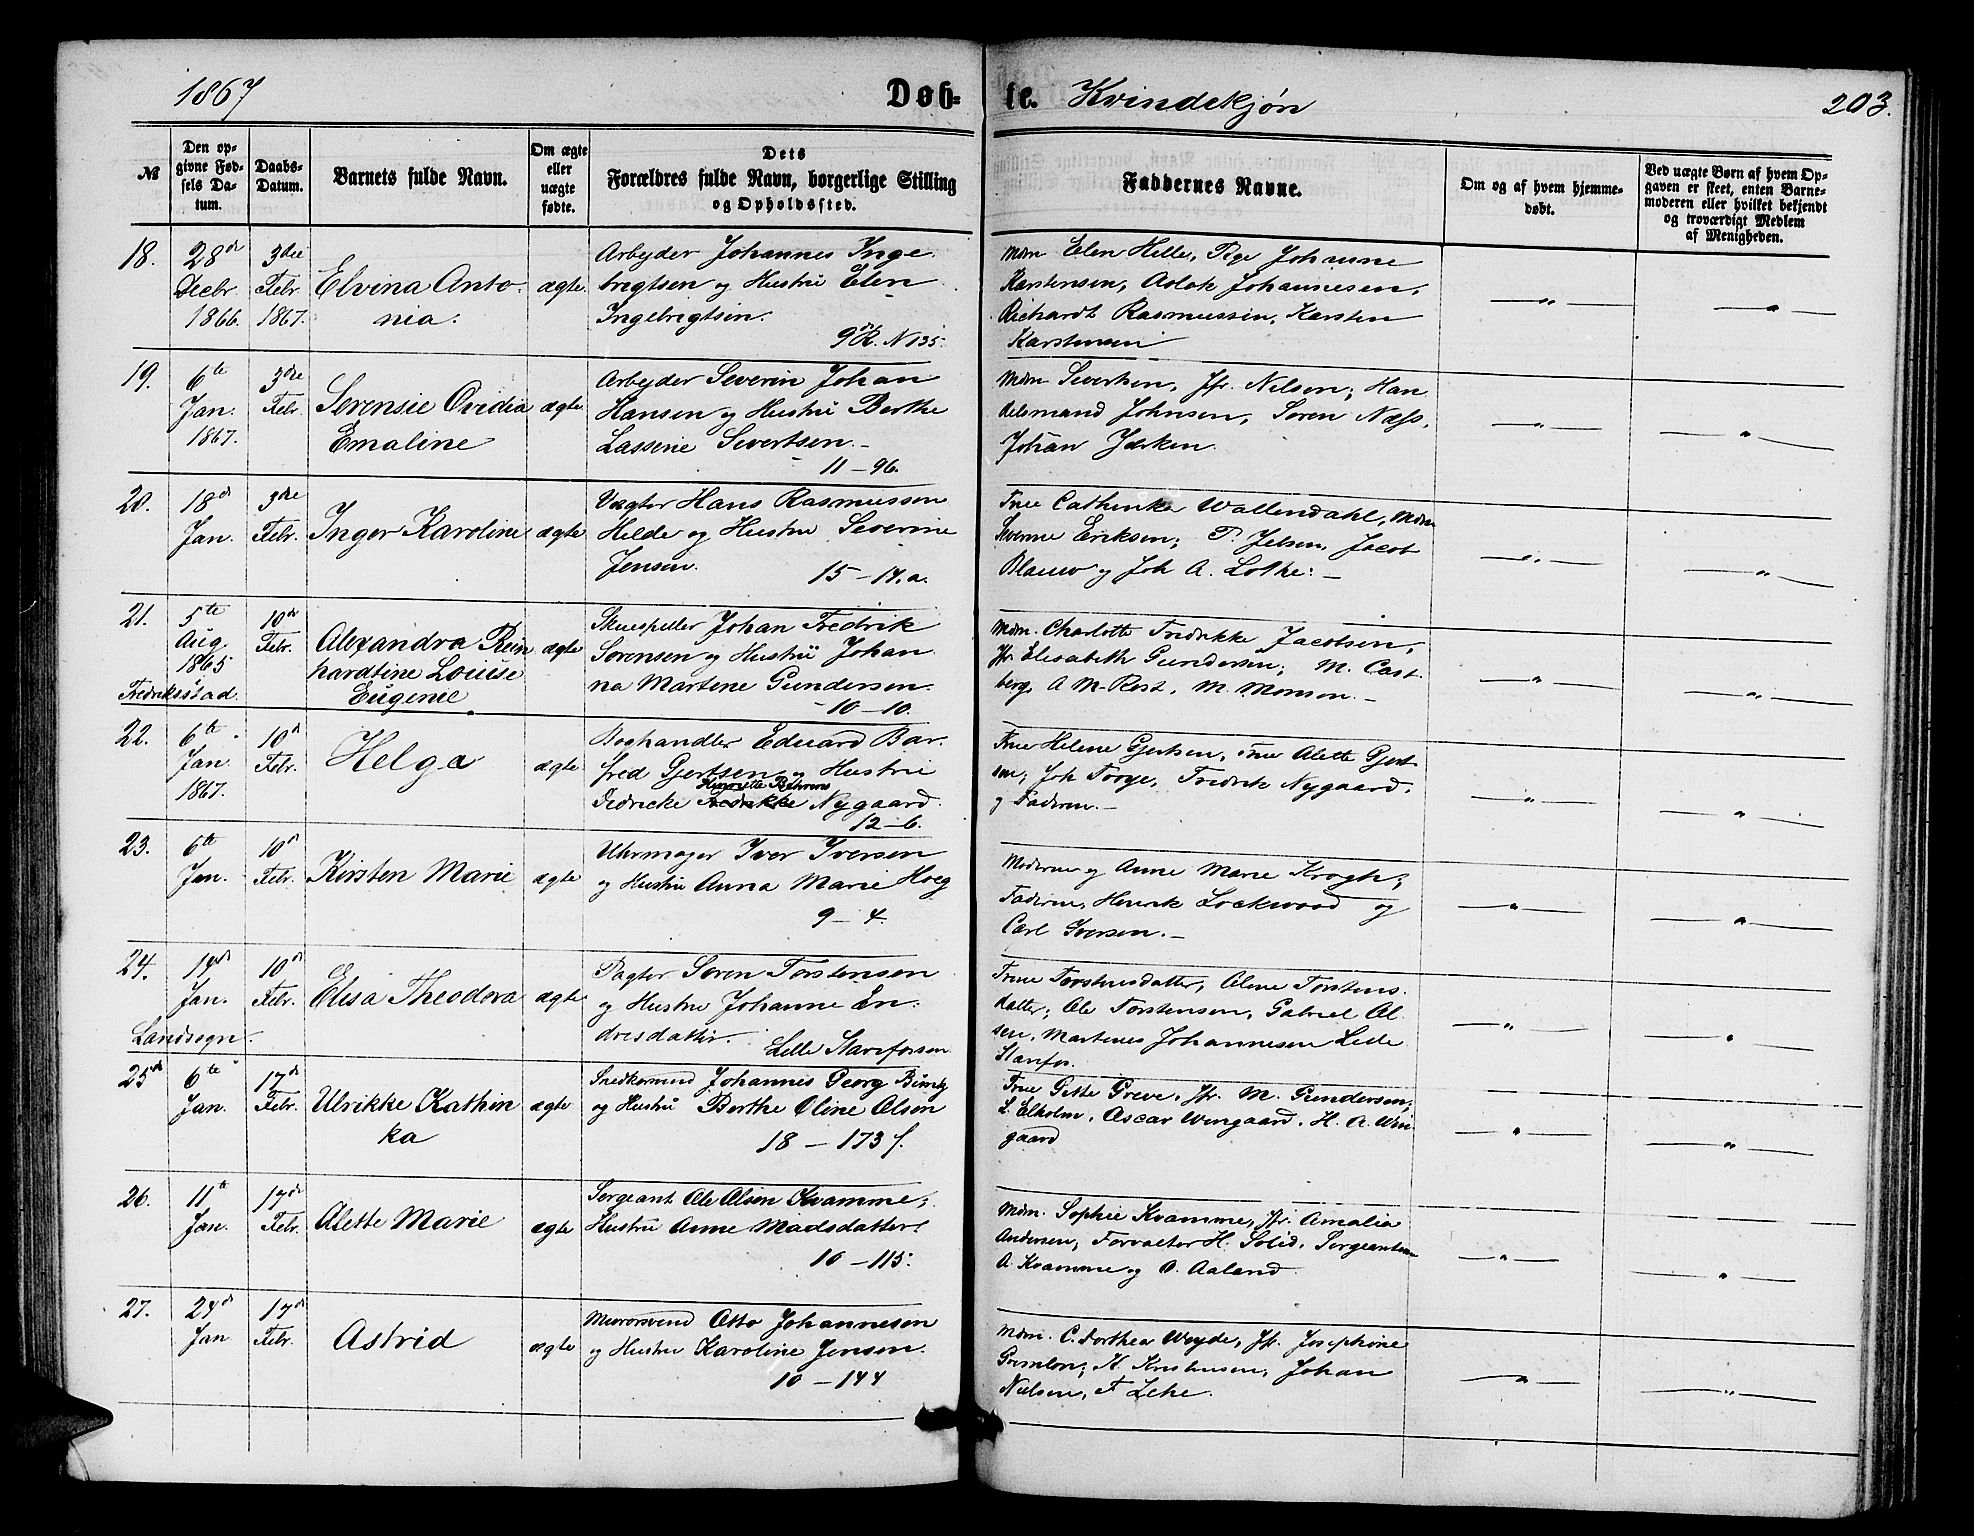 1867
Døb-
te. Kvindekjøn
203.
№
Den op-
givne Fød-
sels Da-
tum.
Daabs-
Datum.
Barnets fulde Navn.
Om ægte
eller
uægte
fødte.
Dets
Forældres fulde Navn, borgerlige Stilling
og Opholdssted.
Faddernes Navne.
Om og af hvem hjemme-
døbt.
Ved uægte Børn af hvem Op-
gaven er skeet, enten Barne-
moderen eller hvilket bekjendt
og troværdigt Medlem
af Menigheden.
18.
28de
Decbr
1866.
3die
Febr
1867.
Elvina Anto-
nia.
ægte
Arbejder Johannes Inge
brigtsen og Hustru Elen
Ingebrigtsen.
9 R. N 135.
Mdm Elen Helle, Pige Johanne
Karstensen, Aslak Johannesen,
Richardt Rasmussen, Karsten
Karstensen
19.
6te
Jan.
1867.
3die
Febr.
Serensie Ovidia
Emaline
ægte
Arbejder Severin Johan
Hansen og Hustru Berthe
Lassene Sivertsen.
11 - 96.
Mdm Sivertsen, Jfr. Nilsen; Han
delsmand Johnsen, Søren Næss,
Johan
20.
18de
Jan.
3die
Febr.
Inger Karoline
ægte
Vægter Hans Rasmussen
Helde og Hustru Severine
Jensen.
15 - 14.a.
Frue Cathinka Wallendahl, Mdm
Severine Eriksen; P. Jebsen, Jacob
Blauw og Joh A. Lothe.
21.
5te
Aug
1865
Fredriksstad.
10de
Febr.
Alexandra Rein
hardtine Louise
Eugenie
ægte
Skuespiller Johan Fredrik
Sørensen og Hustru Johan
na Martene Gundersen.
10 - 10.
Mdm. Charlotte Fredrikke Jacobsen,
Jfr. Elisabeth Gundersen; M. Cast
berg, A M. Rost, M. Monson.
22.
6te
Jan.
1867.
10de
Febr.
Helga
ægte
Boghandler Eduard Bar-
fred Gjertsen og Hustru
Henriette Behrens
Didricke Fredrikke Nygaard.
12 - 6.
Frue Helene Gjertsen, Frue Alette Gjert
sen; Joh Troye, Fredrik Nygaard,
og Faderen.
23.
6te
Jan.
10de
Febr.
Kirsten Marie
ægte
Uhrmager Iver Iversen
og Hustru Anna Marie Hoeg
9 - 4.
Moderen og Anne Marie Krogh;
Faderen, Henrik Lockwood og
Carl Iversen.
24.
14de
Jan.
Landsogn.
10de
Febr.
Elisa Theodora
ægte
Pagter Søren Torstensen
og Hustru Johanne En-
dresdatter.
Lille Starefossen
Trine Torstensdatter, Oline Torstens
datter; Ole Torstensen, Gabriel Ol
sen, Martines Johannesen Lille
Starefos.
25de
6te
Jan.
17de
Febr.
Ulrikke Kathin
ka
ægte
Snedkersvend Johannes Georg
og Hustru Berthe Oline Olsen
18 - 173 f.
Frue Gitte Greve, Jfr. M. Gundersen;
L. Elholm, Oscar Wingaard, H. A. Win
gaard
26.
11te
Jan.
17de
Febr.
Alette Marie
ægte
Sergeant Ole Olsen Kvamme,
Hustru Anne Madsdatter.
10 - 115.
Mdm. Sophie Kvamme, Jfr. Amalia
Andersen; Forvalter H. Solid, Sergeanterne
A. Kvamme og O. Aaland.
27.
24de
Jan
17de
Febr.
Astrid
ægte
Murersvend Otto Johannesen
og Hustru Karoline Jensen.
10 - 144
Mdm. C. Dorthea Weyde, Jfr. Josephine
K. Kristensen, Johan
Nielsen, F. Lehe.